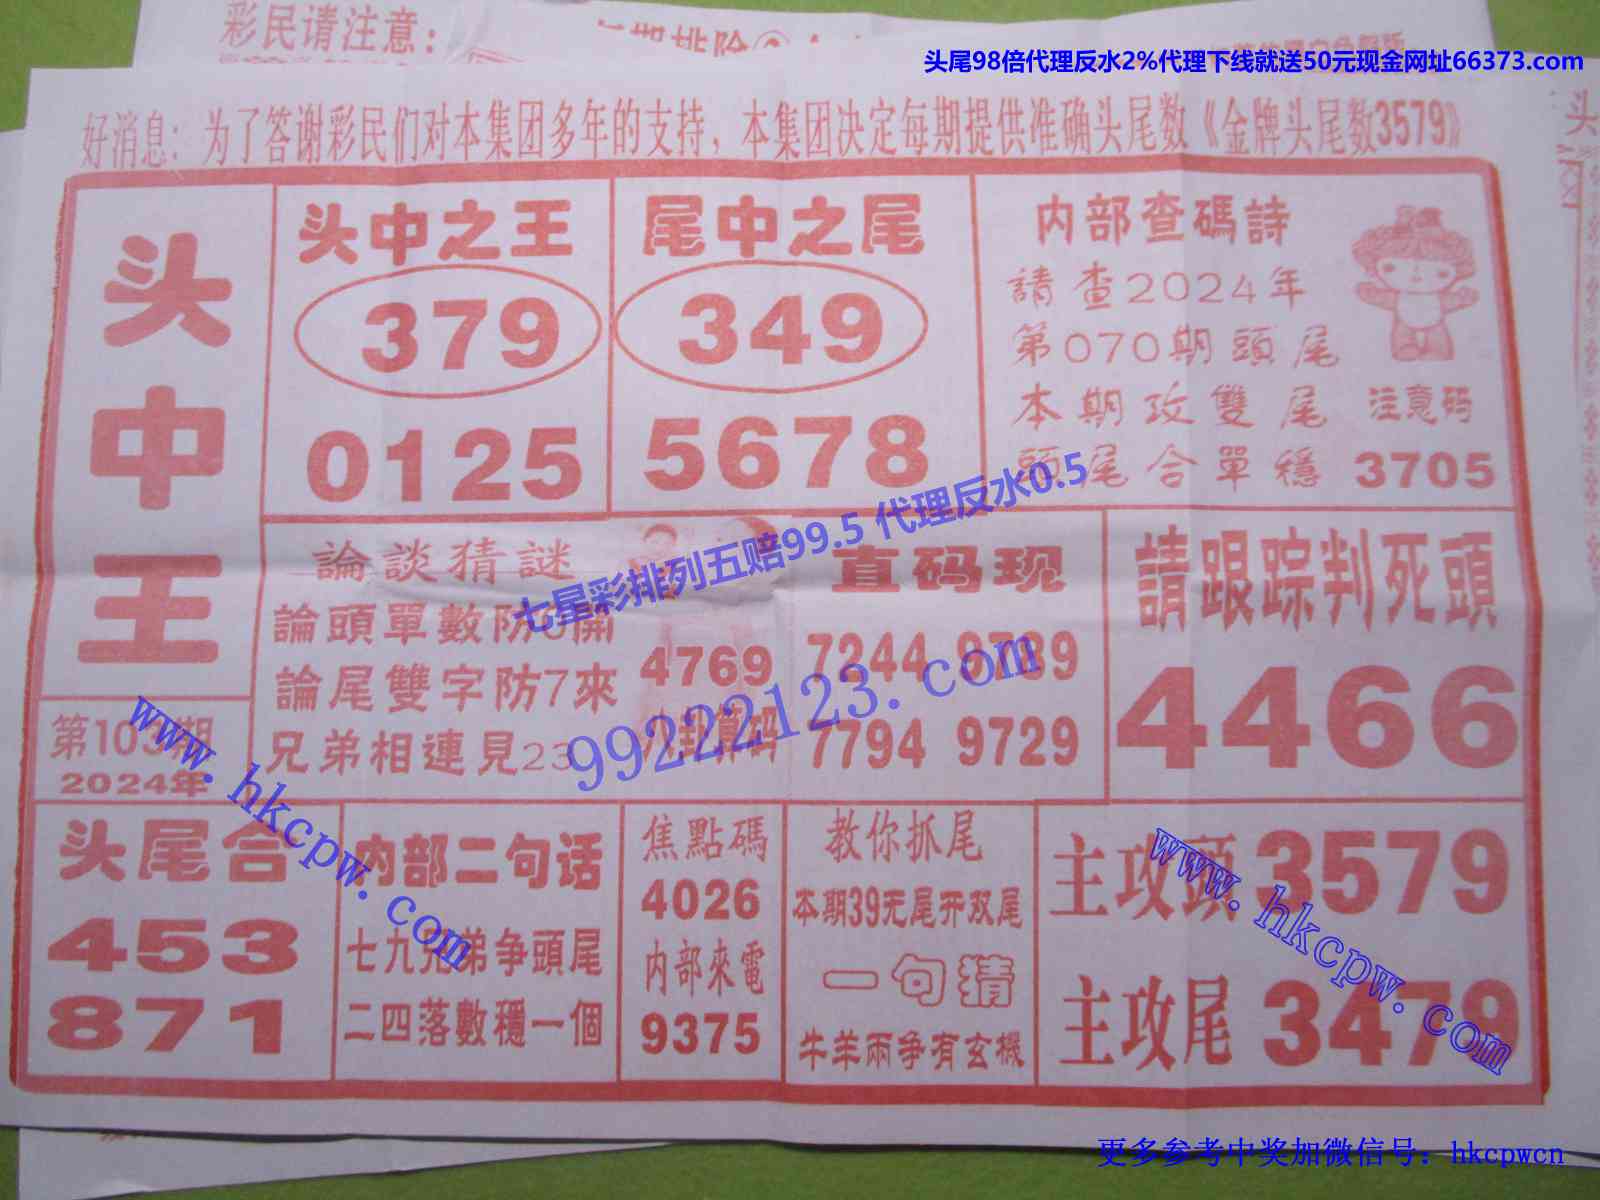 彩民请注意：
头尾98倍代理反水2%代理下线就送50元现金网址66373.com
好消息：为了答谢彩民们对本集团多年的支持，本集团决定每期提供准确头尾数《金牌头尾数3579》
头中王
第103期
2024年
头中之王
379
0125
尾中之尾
349
5678
内部查碼詩
請查2024年
第070期頭尾
本期攻雙尾
頭尾合單穩
注意码
3705
論談猜謎
論頭單數防6開
論尾雙字防7來
兄弟相連見23
4769
八卦算码
直码现
7244 9789
7794 9729
請跟踪判死頭
4466
七星彩排列五赔99.5 代理反水0.5
99222123.com
www.hkcpw.com
头尾合
453
871
内部二句话
七九兄弟争頭尾
二四落數穩一個
焦點碼
4026
内部來電
9375
教你抓尾
本期39无尾开双尾
一句猜
牛羊兩争有玄機
主攻頭3579
主攻尾3479
www.hkcpw.com
更多参考中奖加微信号：hkcpwcn